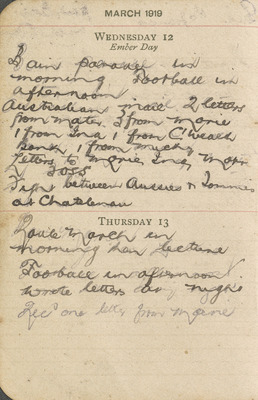 MARCH 1919
WEDNESDAY 12
Ember Day
parade in
morning Football in
afternoon
Australian mail 2 letters
from mater 3 from Marie
1 from Ina 1 from C'wealth
Bank, 1 from
letters to Marie, Ina, Mater
&
between Aussies & Tommies
at Chatelenau
THURSDAY 13
Route March in
morning then lecture
Football in afternoon
wrote letters at night
Rec'd one letter from Marie